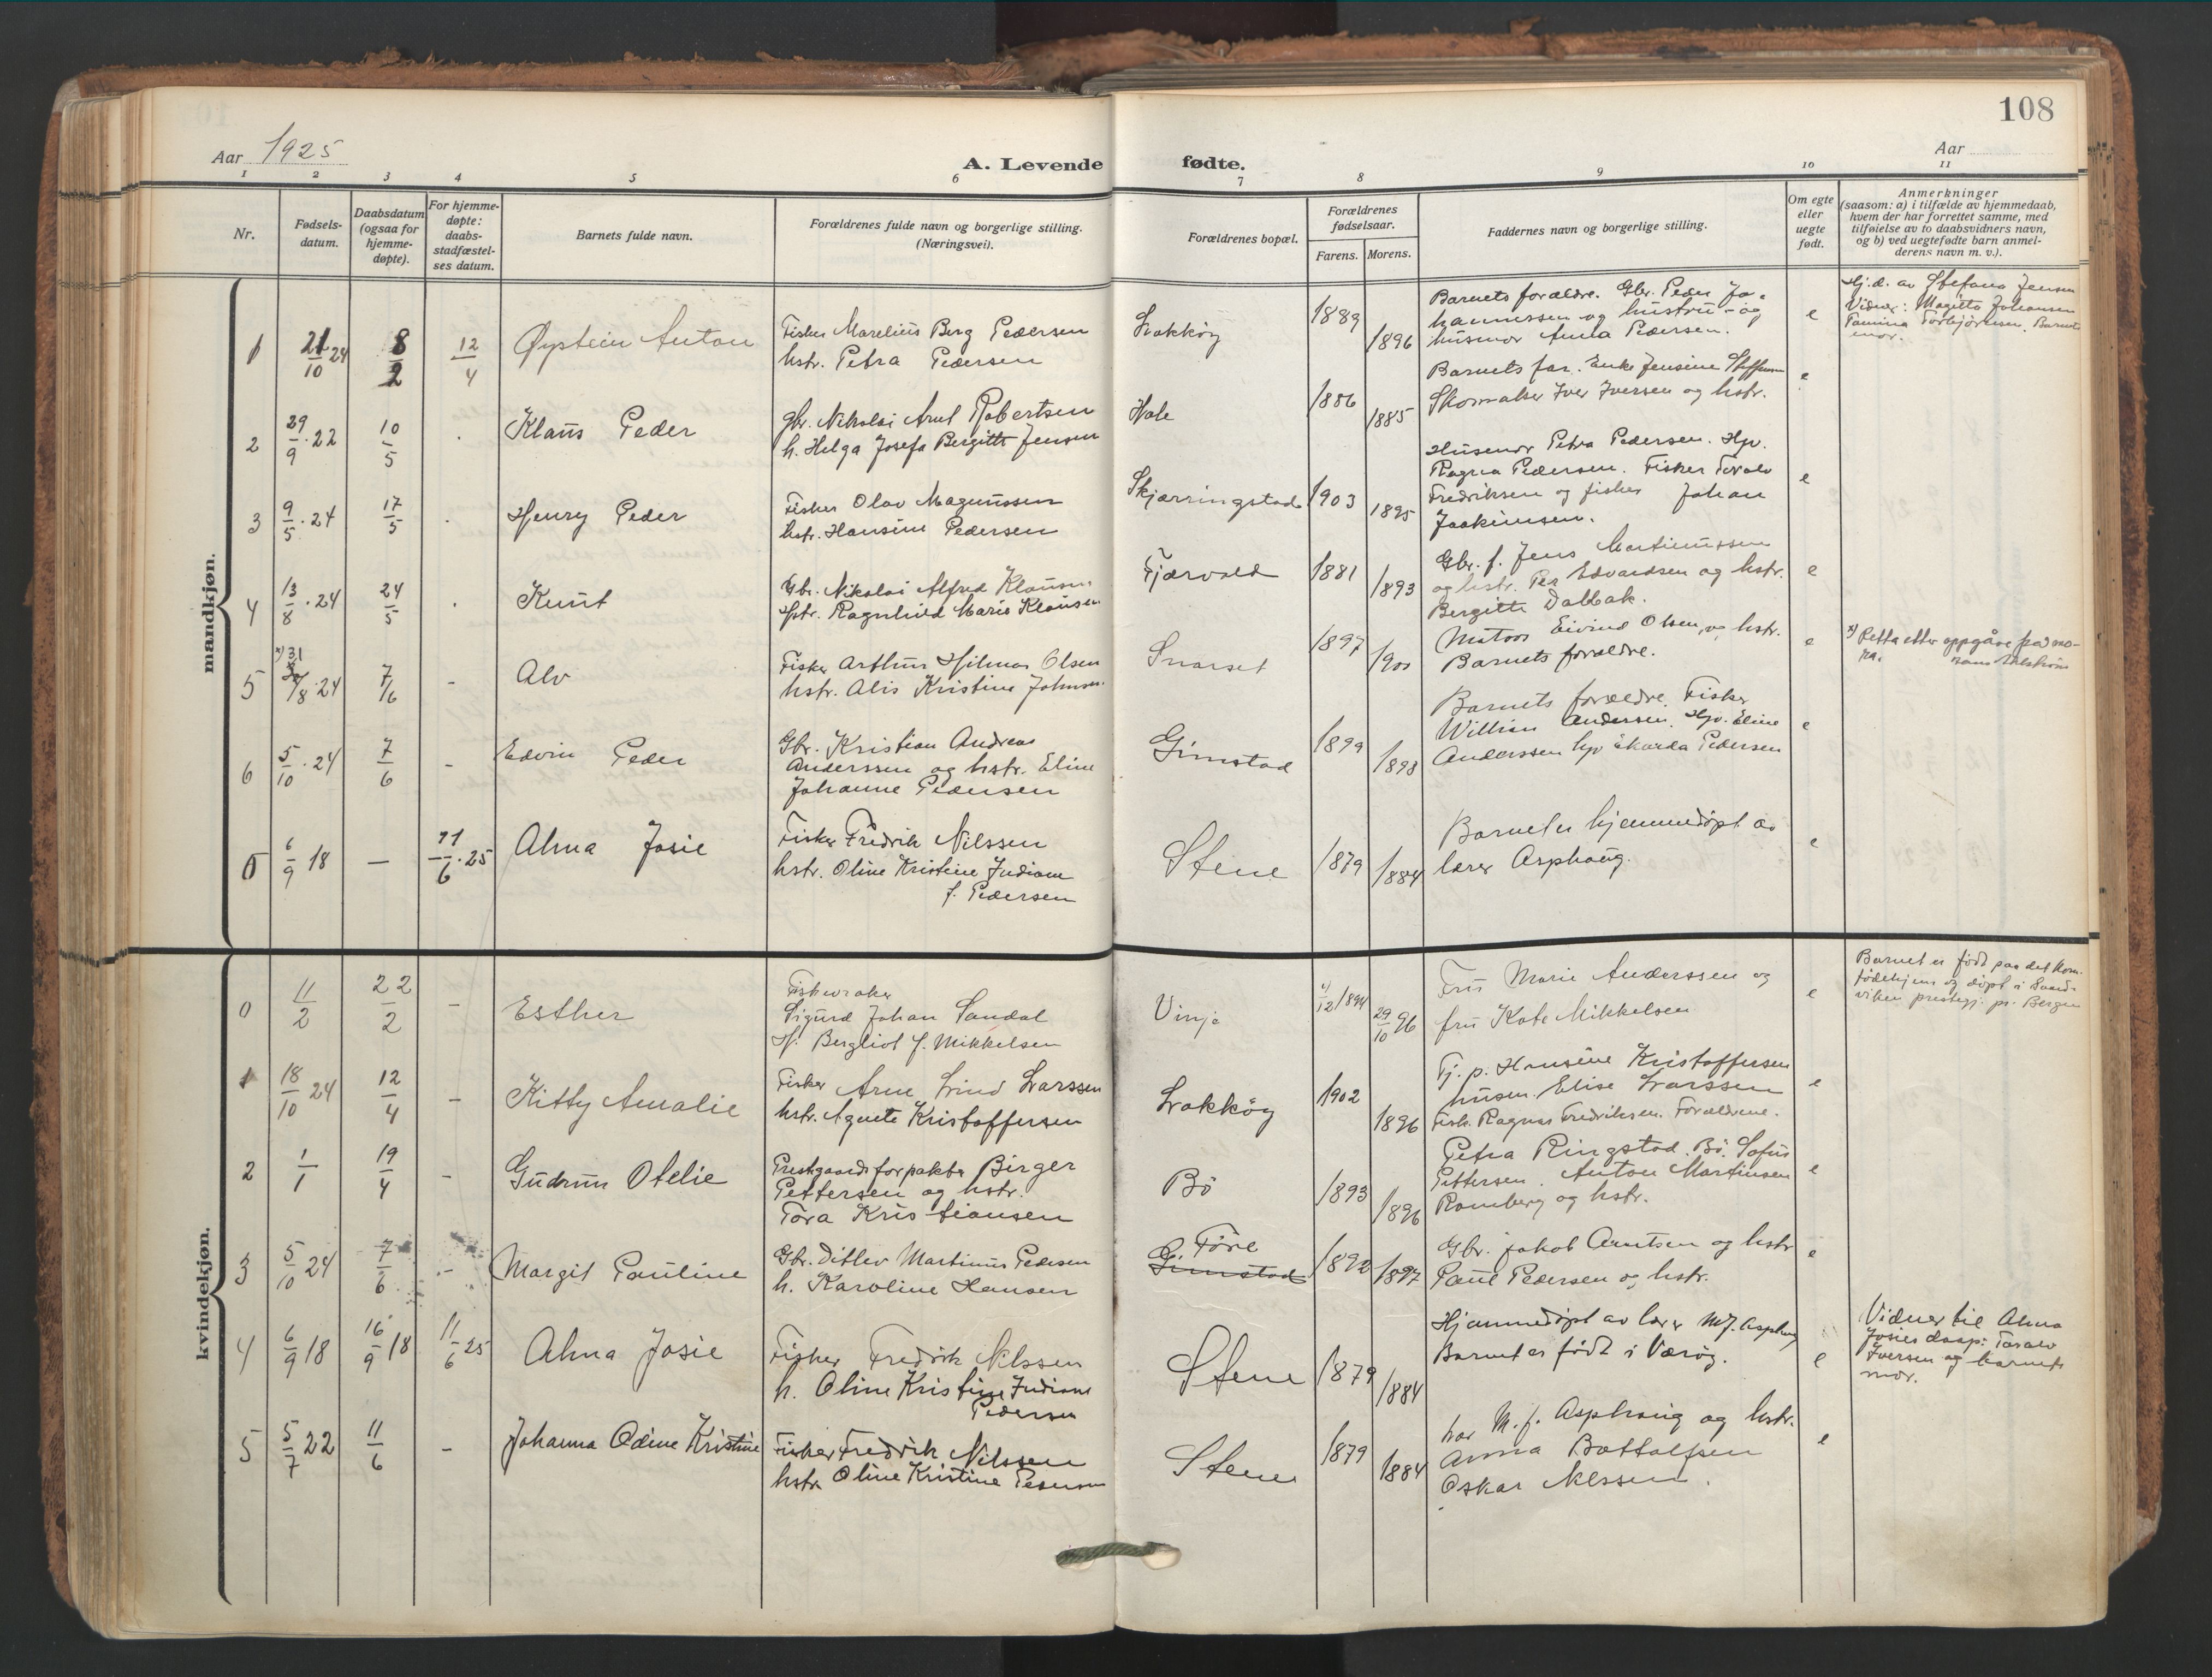 108
Aar 1925
A. Levende fødte.
Aar
1 2 3 4 5 6 7 8 9 10 11
Nr.
Fødsels-
datum.
Daabsdatum
(ogsaa for
hjemme-
døpte).
For hjemme-
døpte:
daabs-
stadfæstel-
ses datum.
Barnets fulde navn.
Forældrenes fulde navn og borgerlige stilling.
(Næringsvei).
Forældrenes bopæl.
Forældrenes
fødselsaar.
Farens. Morens.
Faddernes navn og borgerlige stilling.
Om egte
eller
uegte
født.
Anmerkninger
(saasom: a) i tilfælde av hjemmedaab,
hvem der har forrettet samme, med
tilføielse av to daabsvidners navn,
og b) ved uegtefødte barn anmel-
derens navn m. v.).
mandkjøn.
1 21/10 24 8/2 12/4 Øystein Anton
Fisker Marelius Berg Pedersen
hstr. Petra Pedersen
Lakkøy 1889 1896
Barnets forældre. Gbr. Peder Jo-
hannessen og hustru og
husmor Anna Pedersen.
e
Hj.d. av Stefana Jensen
Vidner: Magitta Johansen
Tamina Torbjørnsen. Barnets
mor.
2 29/9 22 10/5 . Klaus Peder
gbr. Nikolai Arnt Robertsen
h. Helga Josefa Bergitte Jensen
Hole 1886 1885
Barnets far. Enke Jensine Steffensen
Skomaker Iver Iversen og hstr.
e
3 9/5 24 17/5 . Henry Peder
Fisker Olav Magnussen
hstr. Hansine Pedersen
Skjærringstad 1903 1895
Husmor Petra Pedersen. Hpv.
Ragna Pedersen. Fisker Torolv
Fredriksen og fisker Johan
Joakimsen.
e
4 13/8 24 24/5 . Knut
Gbr. Nikolai Alfred Klausen
hstr. Ragnhild Marie Klausen
Fjærvold 1881 1893
Gbr. f. Jens Martinussen
og hstr. Per Edvardsen og hstr.
Bergitte Dalbak.
e
5 x) 31/8 24 7/6 - Alv
Fisker Arthur Hilmar Olsen
hstr. Alis Kristine Johnsen
Snarset 1897 1900
Eivind Olsen og hstr.
Barnets forældre.
e
x) Retta etter oppgåve frå mo-
ra.
6 5/10 24 7/6 - Edvin Peder
Gbr. Kristian Andreas
Anderssen og hstr. Eline
Johanne Pedersen
Gimstad 1899 1898
Barnets forældre. Fisker
William Andersen. Hpv. Eline
Anderssen hpv Skarda Pedersen
e
0 6/9 18 — 11/6 25 Alma Josie
Fisker Fredrik Nilssen
hstr. Oline Kristine Indiane
f. Pedersen
Stene 1879 1884
Barnet er hjemmedøpt av
lærer Asphaug.
e
kvindekjøn.
0 11/2 22/2 - Esther
Fiskevraker
Sigurd Johan Sandal
H. Bergliot f. Mikkelsen
Vinje 4/12 1894 29/10 96
Fru Marie Anderssen og
fru Kate Mikkelsen
e
Barnet er født paa det Kom.
fødehjem og døpt i Sand-
viken prestegj. pr. Bergen
1 18/10 24 12/4 - Kitty Amalie
Fisker Arne Lind Larssen
hstr. Agnete Kristoffersen
Lakkøy 1902 1896
Tj. p. Hansine Kristoffersen
husm. Elise Larssen
Fisk. Ragnar Fredriksen. Forældrene.
e
2 1/1 19/4 - Gudrun Otelie
Prestgaardsforpakter Birger
Pettersen og hstr.
Tora Kristiansen
Bö 1893 1896
Petra Ringstad. Bö. Sofus
Pettersen. Anton Martinsen
Ramberg og hstr.
e
3 5/10 24 7/6 - Margit Pauline
Gbr. Ditlev Martinus Pedersen
h. Karoline Hansen
Före
Gimstad 1892 1897
Gbr. Jakob Arntsen og hstr
Paul Pedersen og hstr.
e
4 6/9 18 16/9 18 11/6 25 Alma Josie
Fisker Fredrik Nilssen
h. Oline Kristine Indiane
Pedersen
Stene 1879 1884
Hjemmedöpt av lærer M.J. Asphaug
Barnet er född i Værøy.
e
Vidner til Alma
Josies daap: Toralv
Iversen og barnets
mor.
5 5/7 22 11/6 - Johanna Odine Kristine
Fisker Fredrik Nilssen
hstr Oline Kristine Pedersen
Stene 1879 1884
lær M.J. Asphaug og hstr.
Anna Bottolfsen
Oskar Nilssen.
e